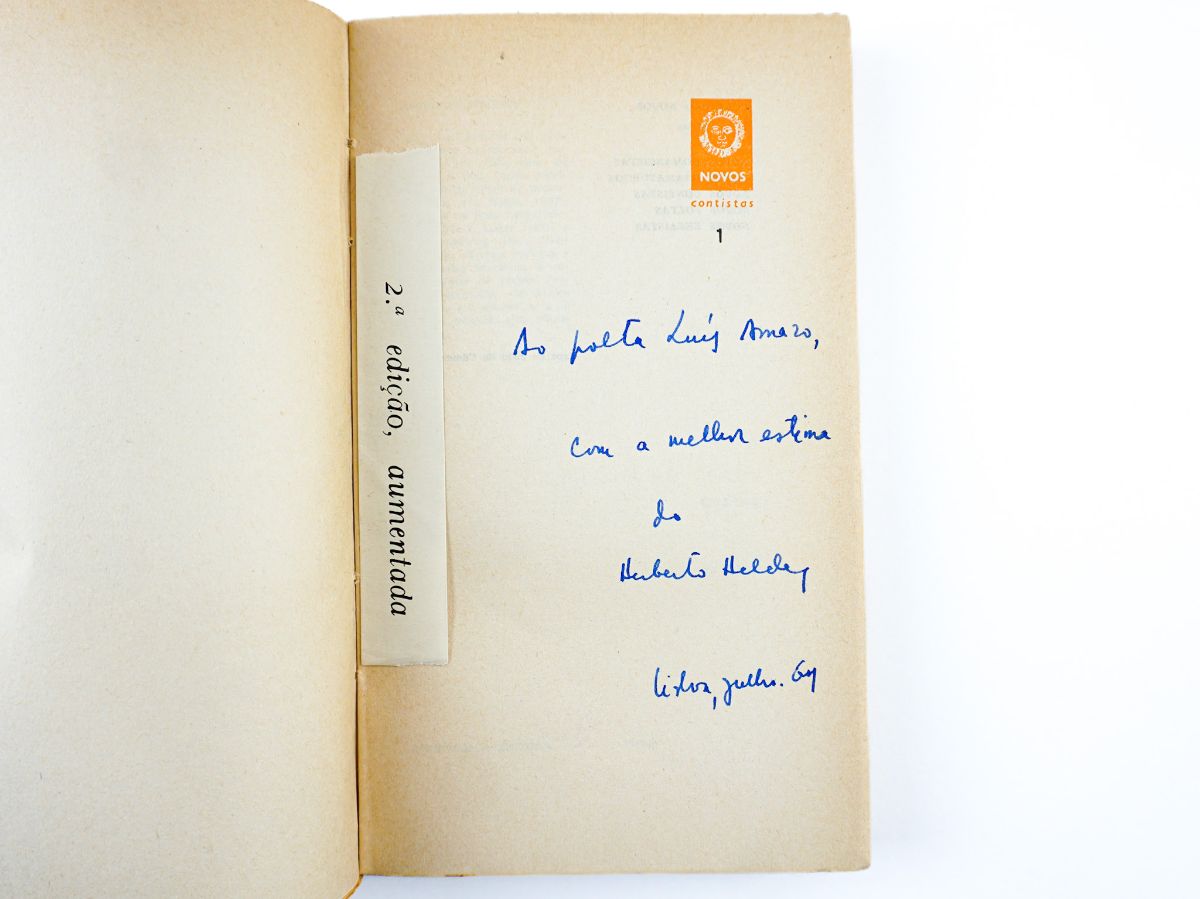 NOVOS
contistas
1
2.ª edição, aumentada
Ao poeta Luís Amaro,
com a melhor estima
do
Herberto Helder
Lisboa, julho. 64